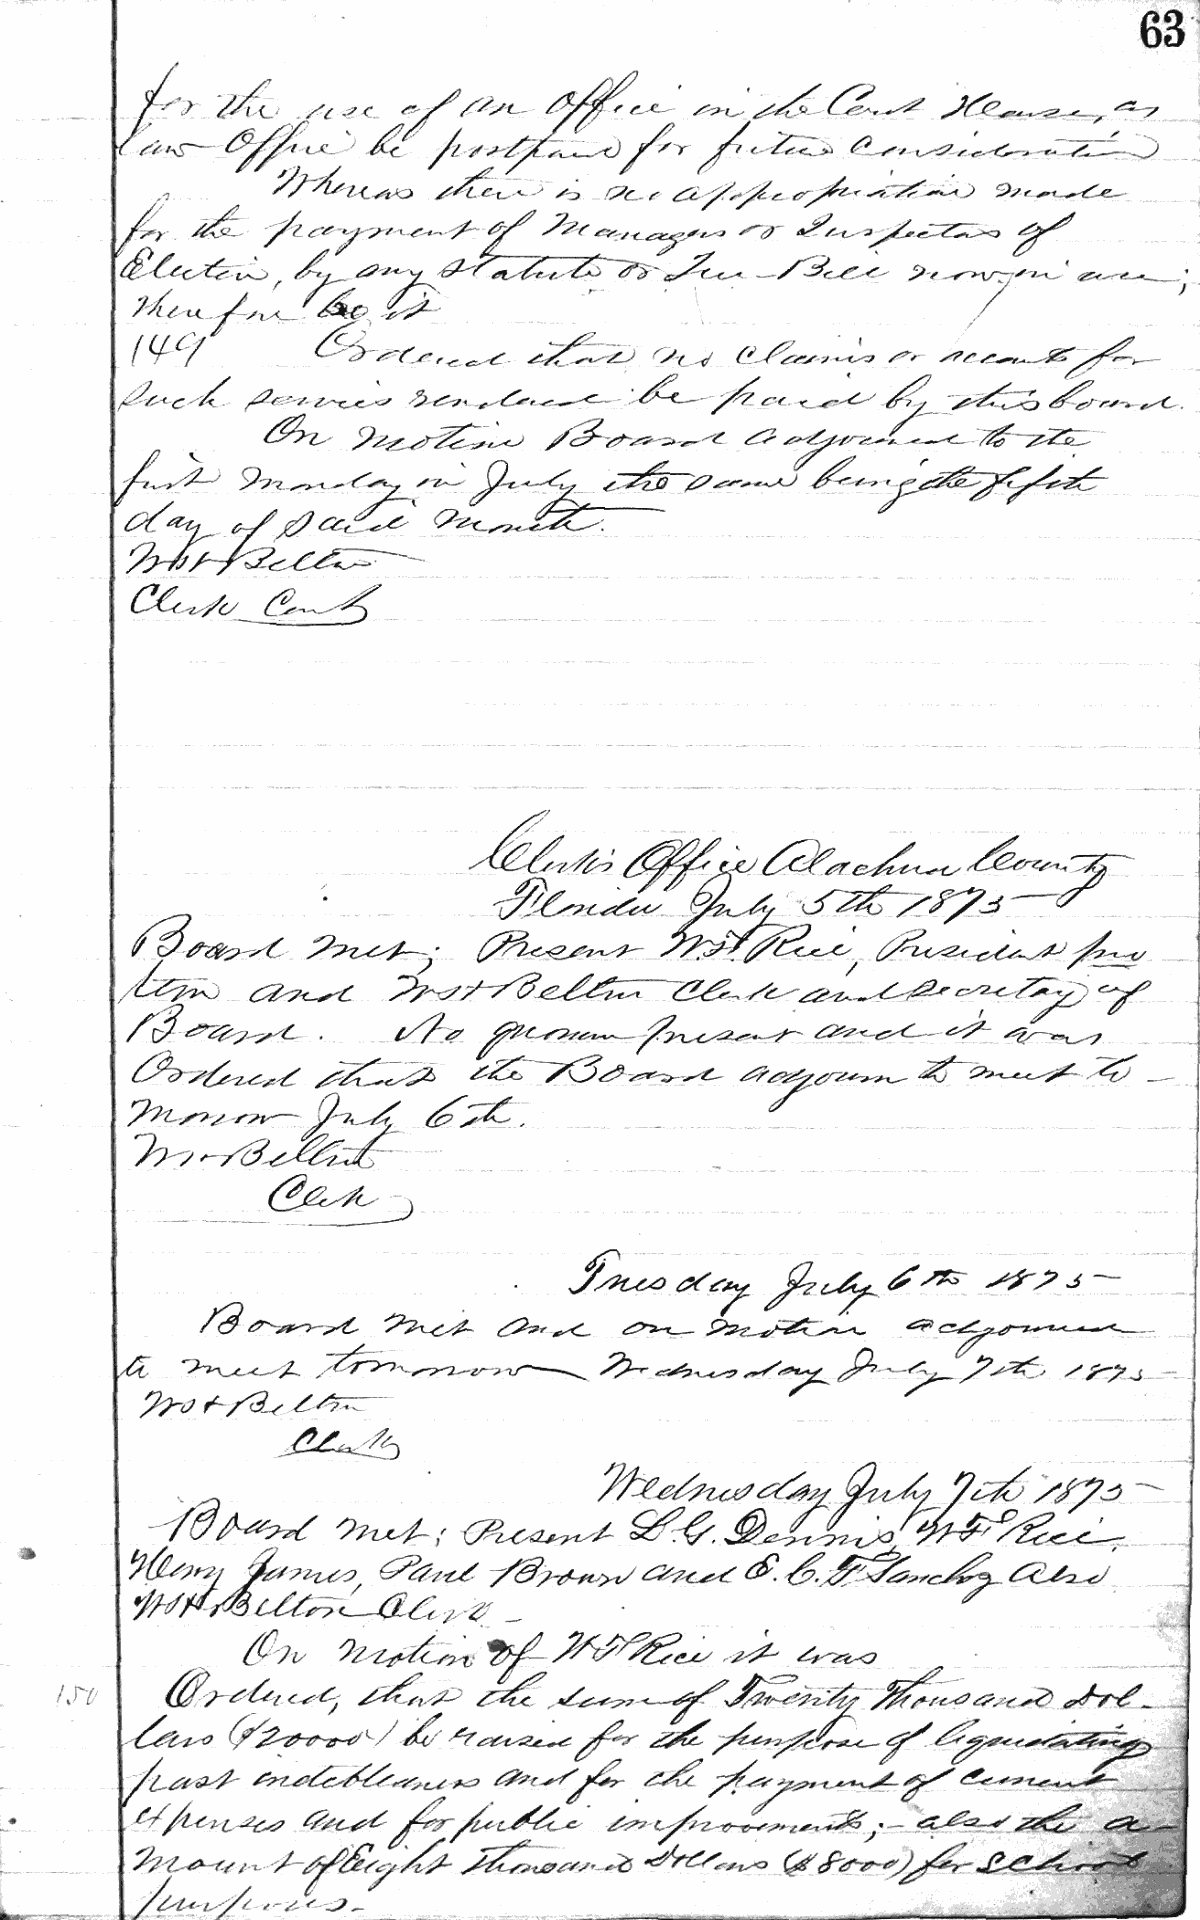 63
for the use of an Office in the Court House, as
Law Office be postpaned for future Consideration
Whereas there is no appropriation made
for the payment of Managers or Inspectors of
Election, by any Statute or Fee-Bill now in use;
therefore be it
149 Ordered that no Claims or accounts for
such services rendered be paid by this board.
On Motion Board adjourned to the
first Monday in July the same being the fifth
day of Said Month.
Belton
Clerk Court
Clerk's Office Alachua County
Florida July 5th 1875
Board met; Present W.F. Rice, President pro
tem and Belton Clerk and Secretary of
Board. No quorum present and it was
Ordered that the Board adjourn to meet to-
morrow July 6th.
Belton
Clerk
Tuesday July 6th 1875
Board met and on motion adjourned
to meet tomorrow Wednesday July 7th 1875
Belton
Clerk
Wednesday July 7th 1875
Board met; Present L.G. Dennis, W.F. Rice,
Henry James, Paul Brown and E.C.F. Sanchez Also
Belton Clerk
On Motion of W F Rice it was
150 Ordered, that the sum of Twenty Thousand Dol-
lars ($20000) be raised for the purpose of liquidating
past indebtedness and for the payment of current
expenses and for public improvements;- also the a-
mount of Eight Thousand Dollars ($8000) for School
purposes.